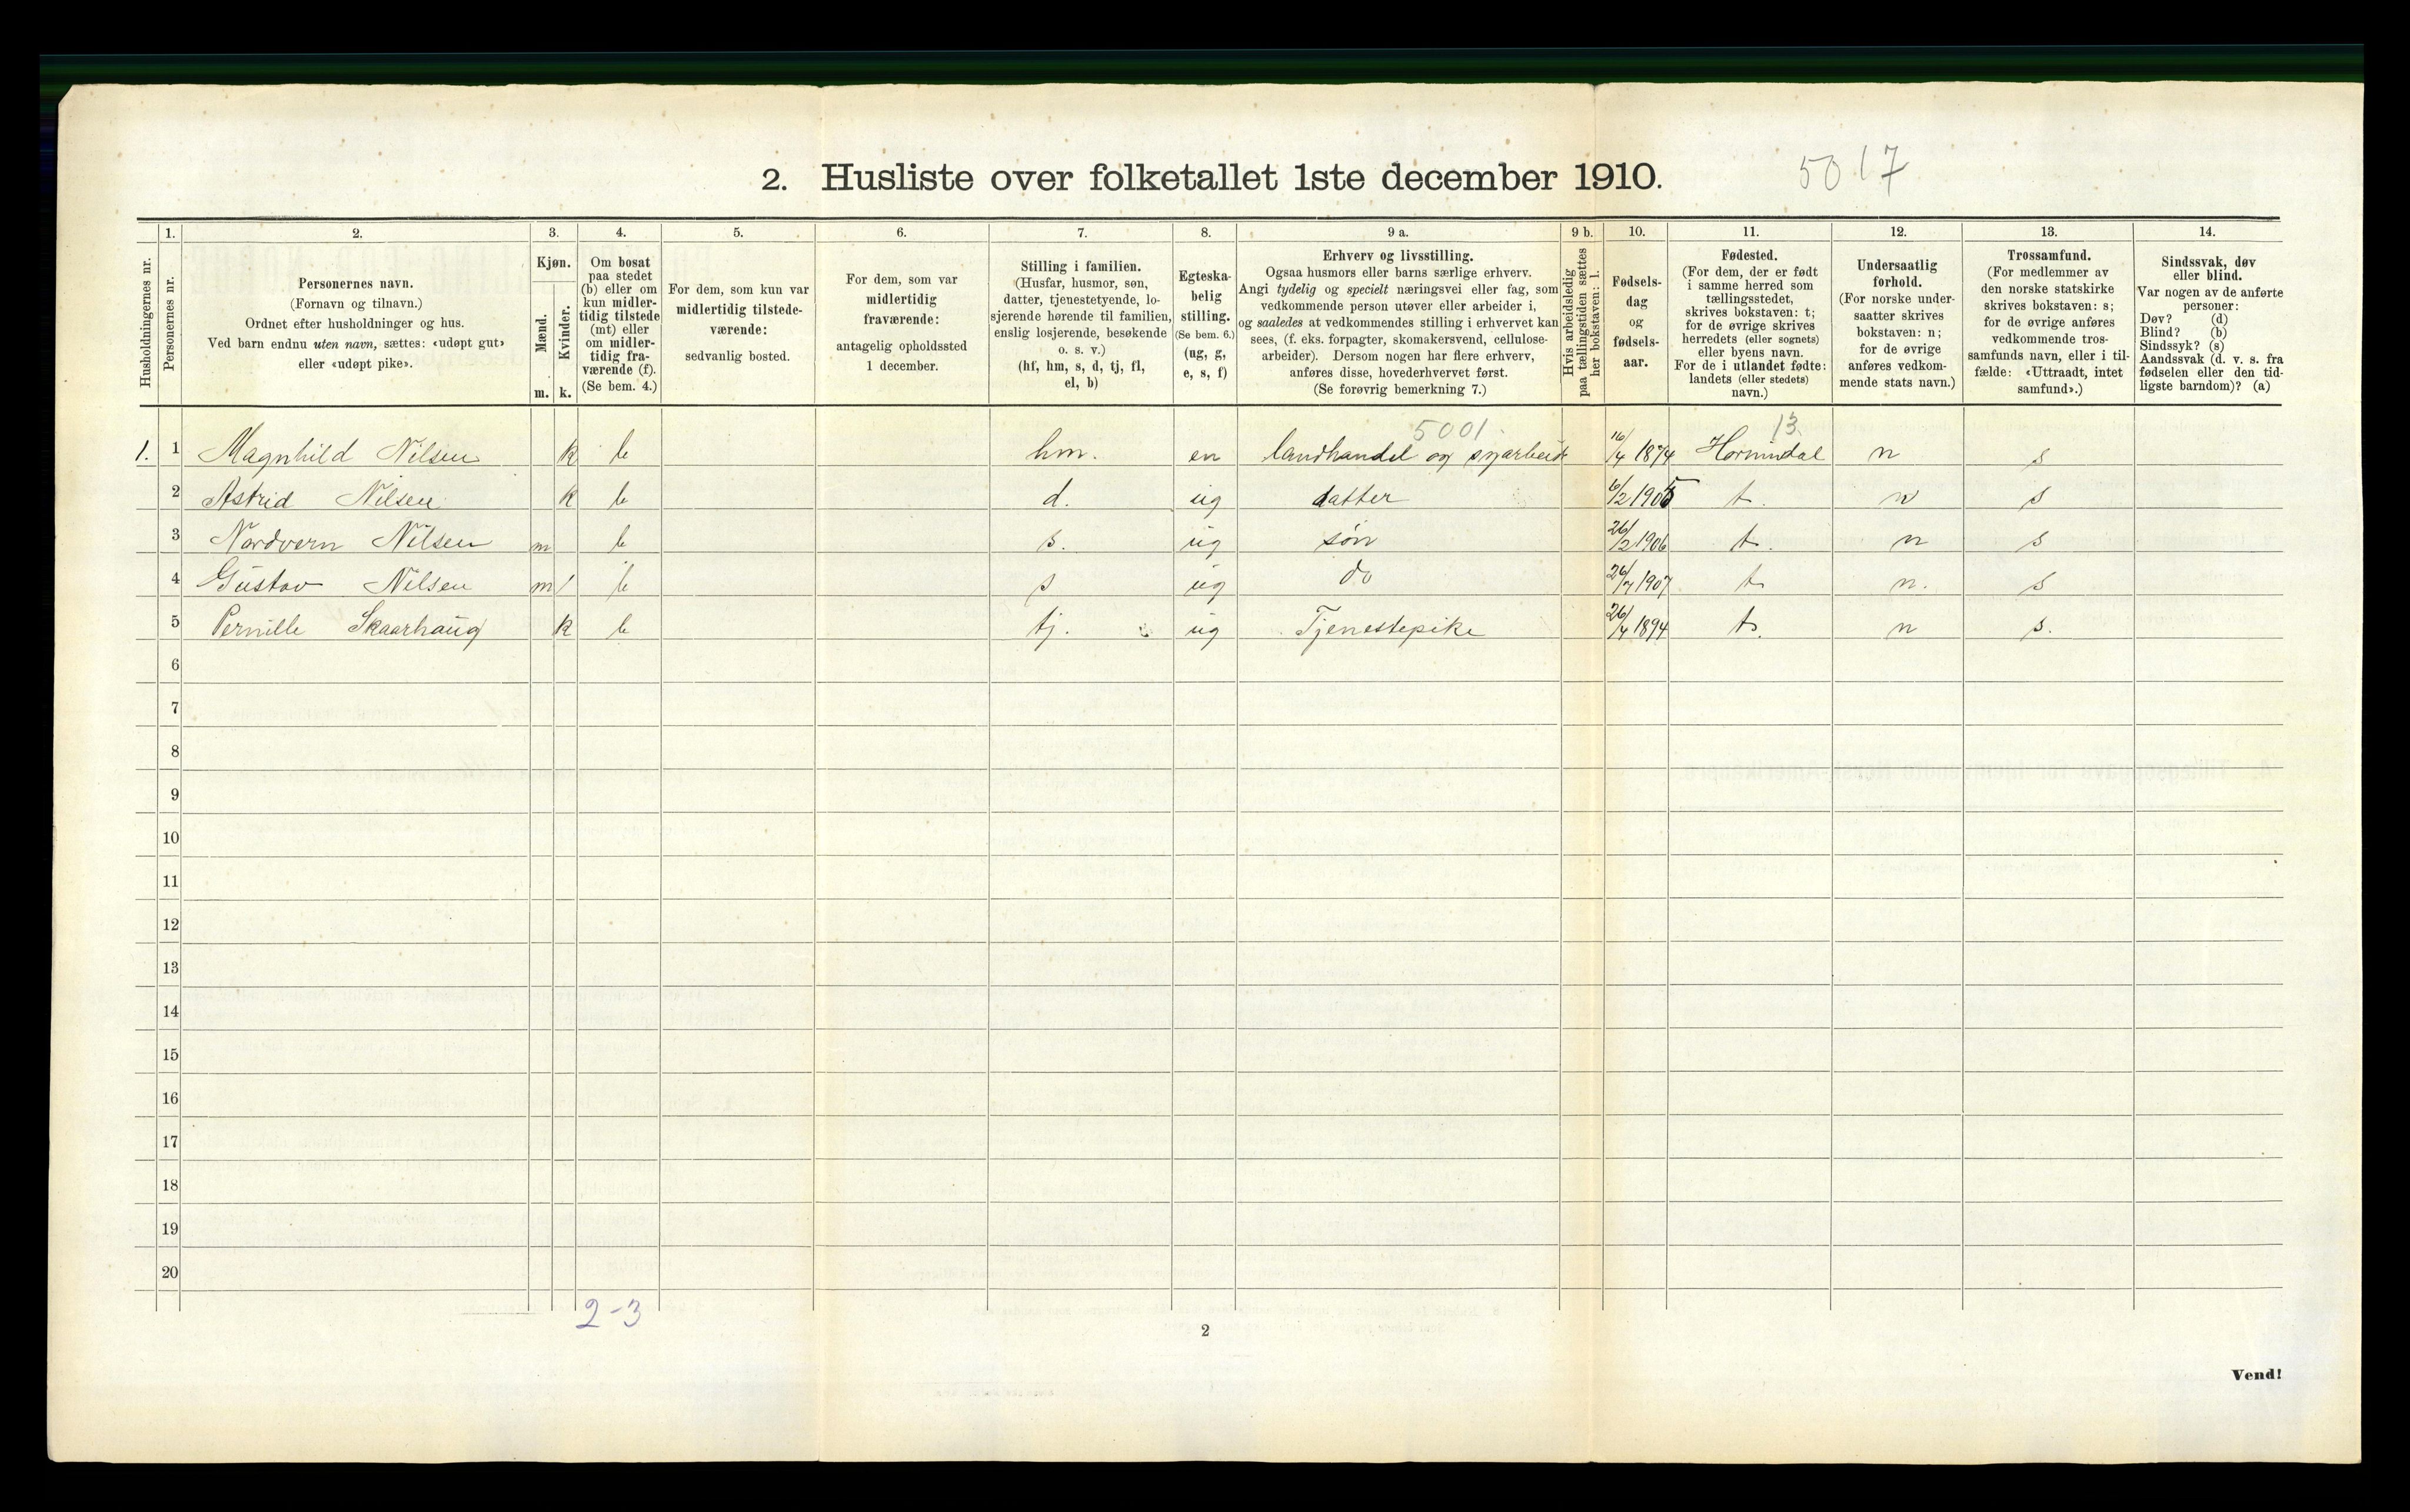 2. Husliste over folketallet 1ste december 1910.
5017
Husholdningernes nr.
1.
Personernes nr.
2.
Personernes navn.
(Fornavn og tilnavn.)
Ordnet efter husholdninger og hus.
Ved barn endnu uten navn, sættes: «udøpt gut»
eller «udøpt pike».
3.
Kjøn.
Mænd.
m.
Kvinder.
k.
4.
Om bosat
paa stedet
(b) eller om
kun midler-
tidig tilstede
(mt) eller
om midler-
tidig fra-
værende (f).
(Se bem. 4.)
5.
For dem, som kun var
midlertidig tilstede-
værende:
sedvanlig bosted.
6.
For dem, som var
midlertidig
fraværende:
antagelig opholdssted
1 december.
7.
Stilling i familien.
(Husfar, husmor, søn,
datter, tjenestetyende, lo-
sjerende hørende til familien,
enslig losjerende, besøkende
o. s. v.)
(hf, hm, s, d, tj, fl,
el, b)
8.
Egteska-
belig
stilling.
(Se bem. 6.)
(ug, g,
e, s, f)
9 a.
Erhverv og livsstilling.
Ogsaa husmors eller barns særlige erhverv.
Angi tydelig og specielt næringsvei eller fag, som
vedkommende person utøver eller arbeider i,
og saaledes at vedkommendes stilling i erhvervet kan
sees, (f. eks. forpagter, skomakersvend, cellulose-
arbeider). Dersom nogen har flere erhverv,
anføres disse, hovederhvervet først.
(Se forøvrig bemerkning 7.)
9 b.
Hvis arbeidsledig
paa tællingstiden sættes
her bokstaven: l.
10.
Fødsels-
dag
og
fødsels-
aar.
11.
Fødested.
(For dem, der er født
i samme herred som
tællingsstedet,
skrives bokstaven: t;
for de øvrige skrives
herredets (eller sognets)
eller byens navn.
For de i utlandet fødte:
landets (eller stedets)
navn.)
12.
Undersaatlig
forhold.
(For norske under-
saatter skrives
bokstaven: n;
for de øvrige
anføres vedkom-
mende stats navn.)
13.
Trossamfund.
(For medlemmer av
den norske statskirke
skrives bokstaven: s;
for de øvrige anføres
vedkommende tros-
samfunds navn, eller i til-
fælde: «Uttraadt, intet
samfund».)
14.
Sindssvak, døv
eller blind.
Var nogen av de anførte
personer:
Døv? (d)
Blind? (b)
Sindssyk? (s)
Aandssvak (d. v. s. fra
fødselen eller den tid-
ligste barndom)? (a)
5001. 13.
1. 1 Magnhild Nilsen k b hm. en landhandel og syarbeid 16/4 1874 Hornindal n s
2 Astrid Nilsen k b d. ug datter 6/2 1905 t. n s
3 Nordvern Nilsen m b s. ug søn 26/2 1906 t. n s
4 Gustav Nilsen m b s ug do 26/7 1907 t n. s
5 Pernille Skaarhaug k b tj. ug Tjenestepike 26/4 1894 t. n s.
6
7
8
9
10
11
12
13
14
15
16
17
18
19
20
2-3
2
Vend!